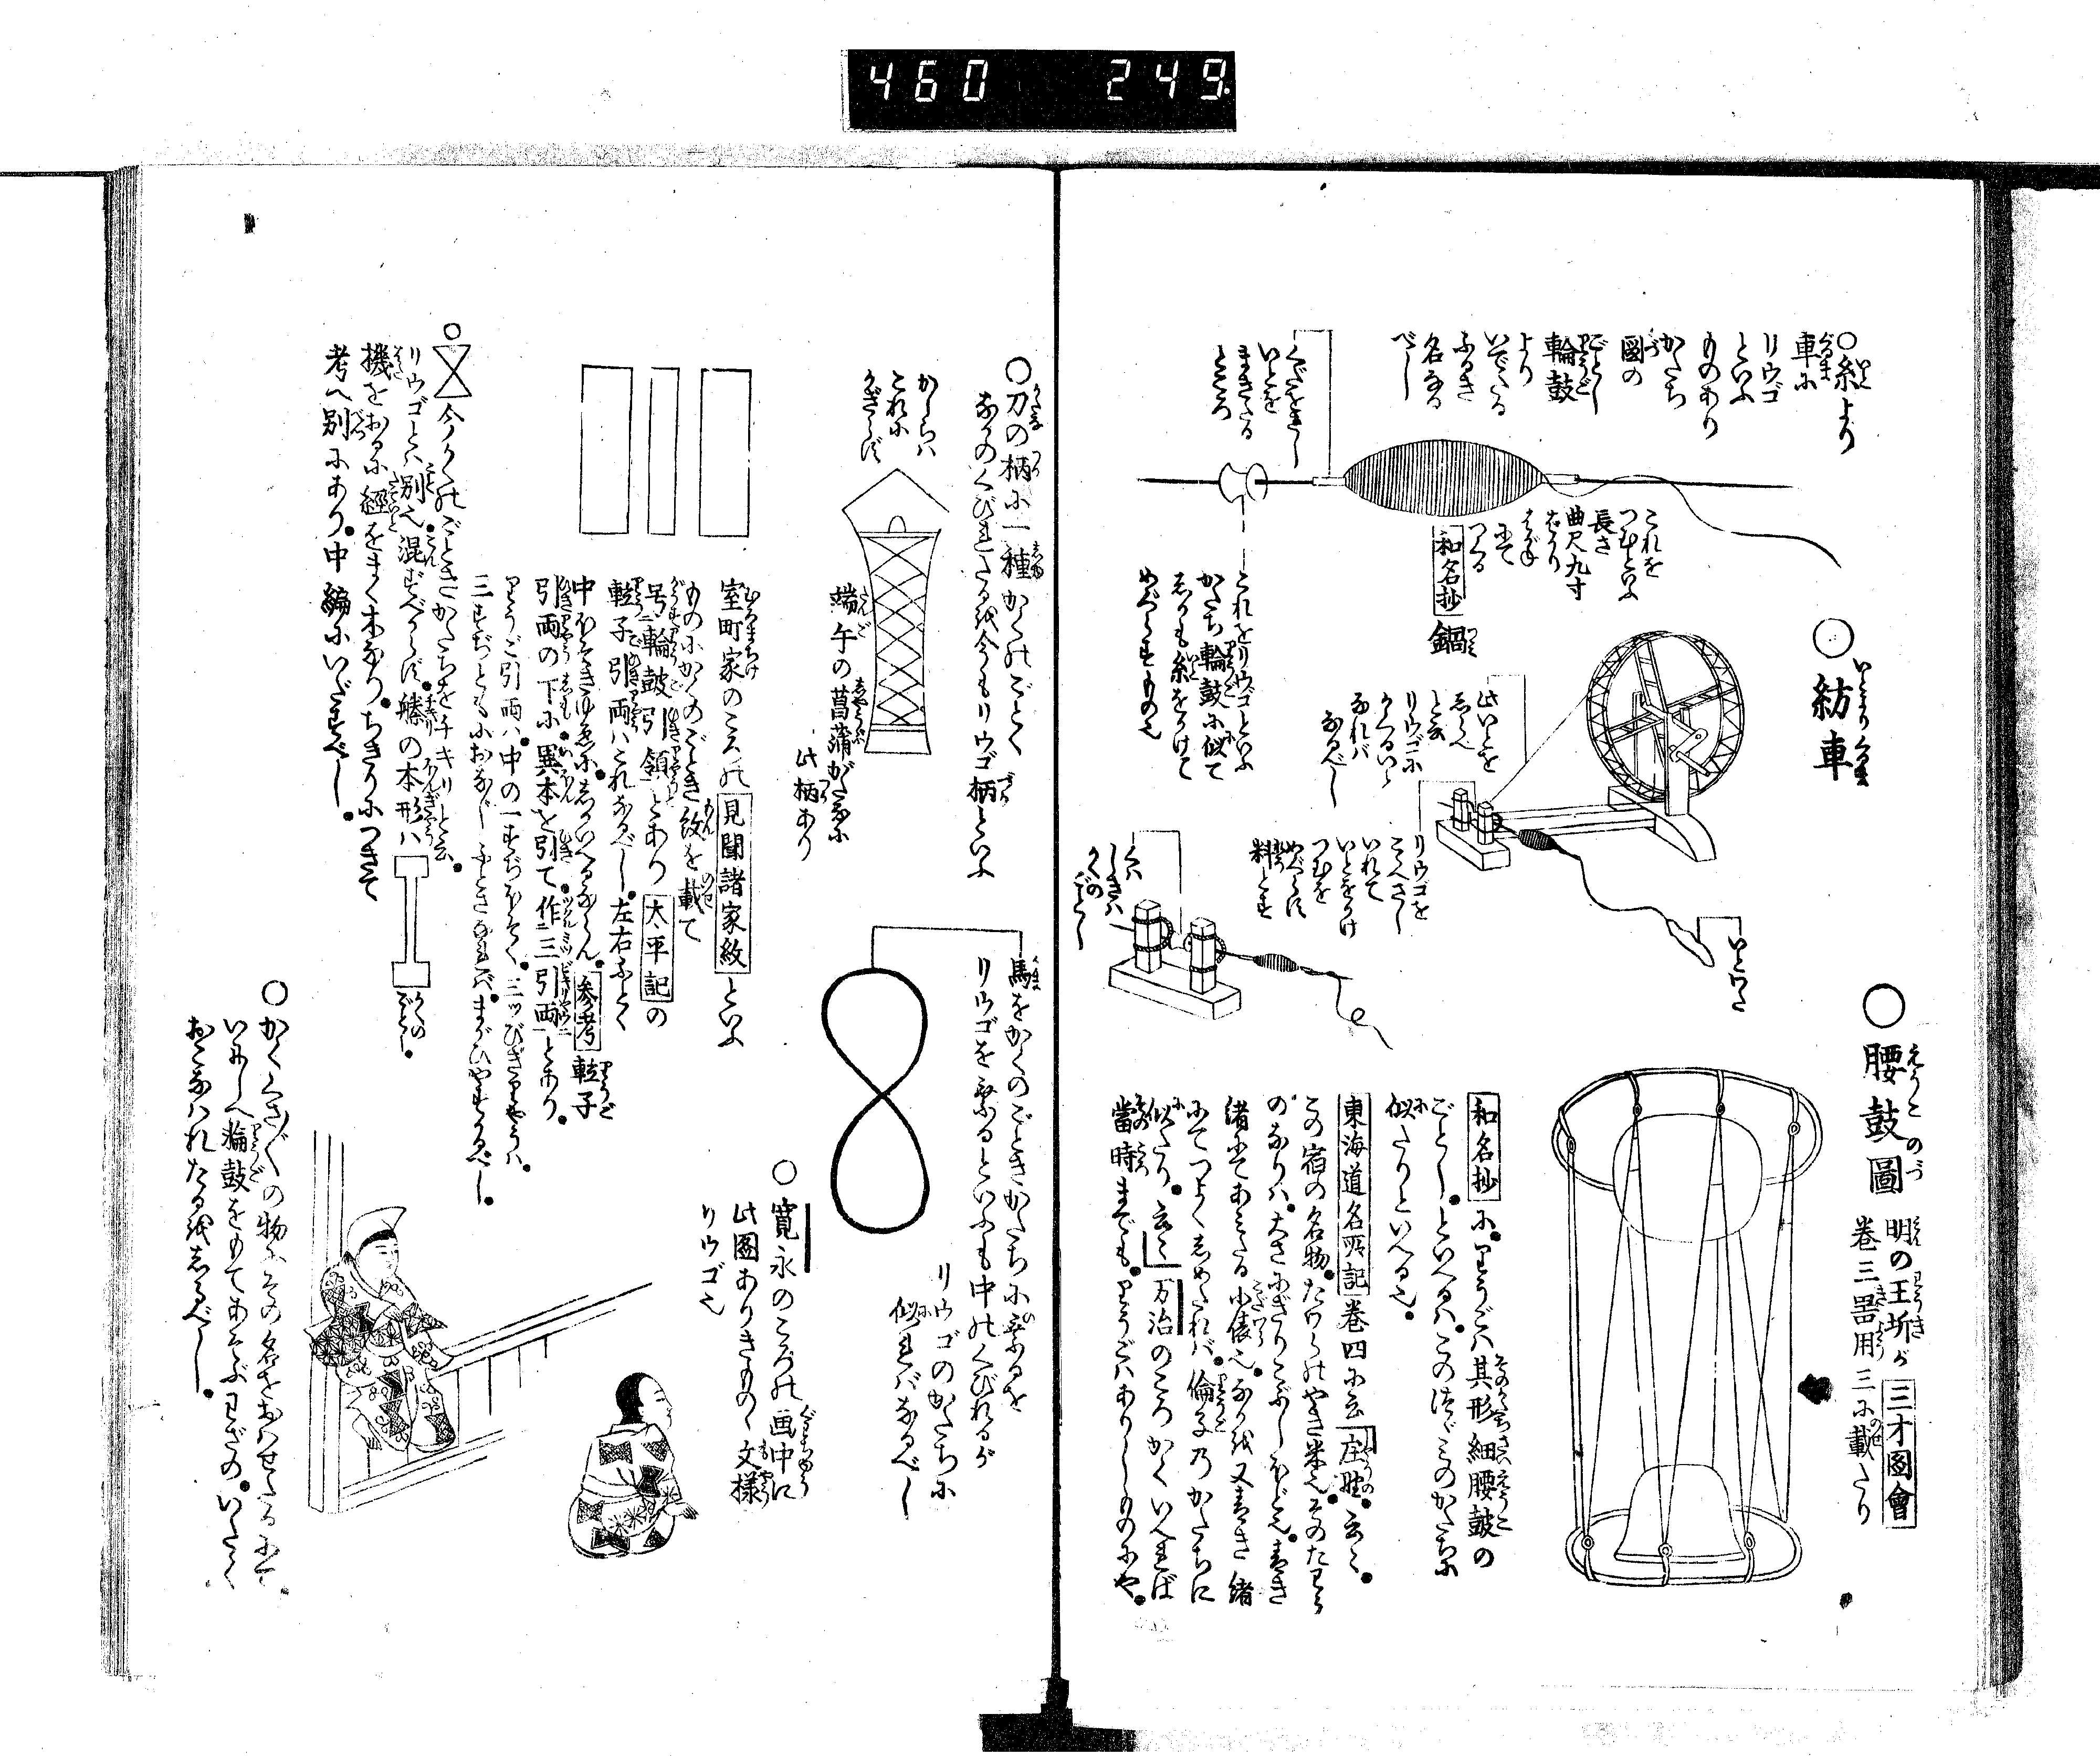 460 249
○腰鼓圖 明の王圻が三才図會
巻三器用三に載たり
○紡車
○糸より
車に
リウゴ
といふ
ものあり
かたち
図の
ごとし
輪鼓
より
いでたる
ふるき
名なる
べし
くだをさし
いとを
まきたる
ところ
これを
つむといふ
長さ
曲尺九寸
ばかり
にて
つくる
和名抄 鍋
これをリウゴといふ
かたち輪鼓に似て
しかも糸をかけて
めぐらすもの也
此いとを
しらべ
と云
リウゴに
かくるいと
なれバ
なるべし
リウゴを
こゝへさし
いれて
いとをかけ
つむを
めぐらす
料とす
いとわた
くハ
しきハ
かくの
ごとし
和名抄に。りうごハ其形細腰鼓の
ごとし。といへるハ。このつゞミのかたちに
似たりといへる也。
東海道名所記巻四に云 庄野。云々。
この宿の名物。たわらのやき米也。そのたわら
のなりハ。大さにぎりこぶしほど也。青き
緒にてあミたる小俵也。なかを又青き緒
にてつよくしめたれバ。倫子乃かたちに
似たり。云々 万治のころかくいへれば
當時までも。りうごハありしものにや。
○刀の柄に一種かくのごとく
なかのくびれたるを今もリウゴ柄といふ
かしらハ
これに
かぎらず
端午の菖蒲がたなに
此柄あり
馬をかくのごときかたちに乗るを
リウゴを乗るといふも中のくびれるが
リウゴのかたちに
似ればなるべし
室町家のころの見聞諸家紋といふ
ものにかくのごとき紋を載て
号輪鼓引領とあり太平記の
輪子引両ハこれなるべし。左右ふとく
中ほそきゆゑに。しかいへるならん。参考輪子
引両の下に。異本を引て。作三引両とあり。
りうご引両ハ。中の一すぢほそく。三ッびきりやうハ。
三すぢともにおなじふとさなれバ。まがひやすかるべし。
○今かくのごときかたちをチキリと云。
リウゴとハ別也。混ずべからず。榺の本形ハ
かくの
ごとし。
機をおるに經をまく木なり。ちきりにつきて
考へ別にあり。中編にいだすべし。
○寛永のころの画中に
此図ありきものゝ文様
リウゴ也
○かくくさ〴〵の物にその名をおハせたるにて。
いにしへ輪鼓をもてあそぶわざの。いたく
おこなハれたるをしるべし。